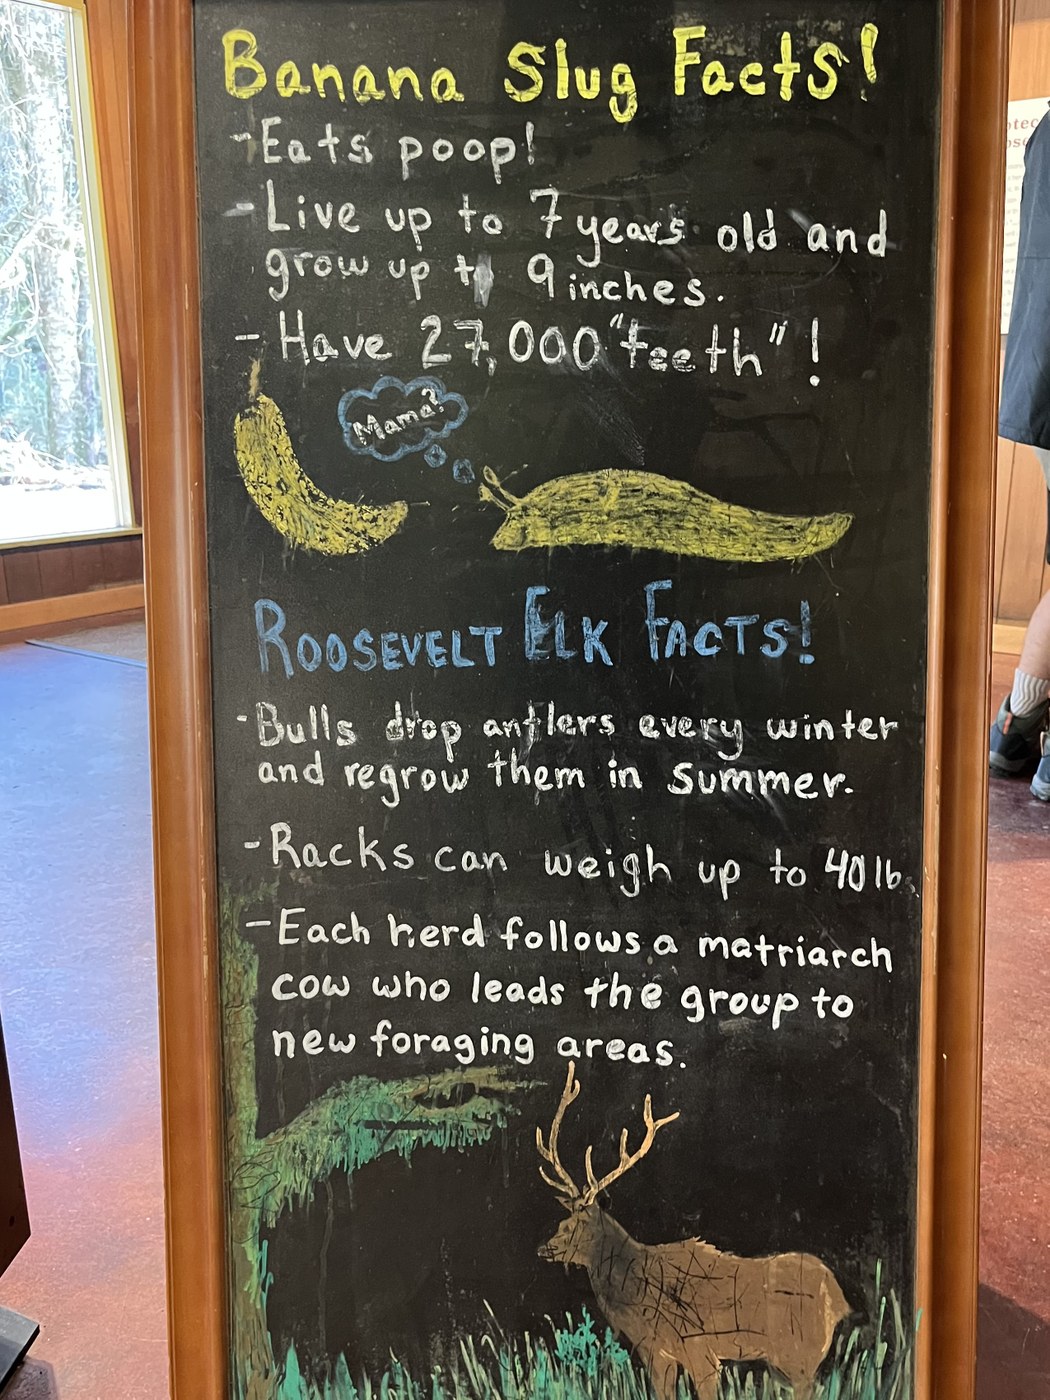 Banana Slug Facts!
- Eats poop!
- Live up to 7 years old and
grow up to 9 inches.
- Have 27,000 "teeth"!
Mama?
ROOSEVELT ELK FACTS!
- Bulls drop antlers every winter
and regrow them in summer.
- Racks can weigh up to 40 lb.
- Each herd follows a matriarch
cow who leads the group to
new foraging areas.